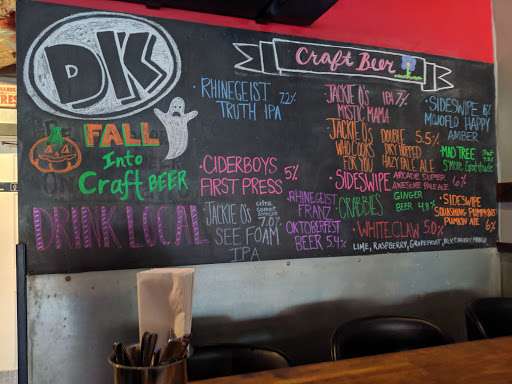 DKS
FALL
Into
Craft BEER
DRINK LOCAL
Craft Beer
RHINEGEIST 7.2%
TRUTH IPA
CIDERBOYS 5%
FIRST PRESS
JACKIE O'S
SEE FOAM
IPA
citra
comet
7.0%
RHINEGEIST
FRANZ
OKTOBERFEST
BEER 5.4%
JACKIE O'S IPA 7%
MYSTIC MAMA
JACKIE O'S DOUBLE 5.5%
WHO COOKS DRY HOPPED
FOR YOU HAZY PALE ALE
SIDESWIPE ARCADE SUPER 6%
AWESOME PALE ALE
CRABBIES GINGER
BEER 4.8%
WHITECLAW 5.0%
LIME, RASPBERRY, GRAPEFRUIT, BLK CHERRY, MANGO
SIDESWIPE
HAPPY
AMBER
MADTREE Stout
7.8%
S'more Gratitude
SIDESWIPE
SQUASHING PUMPKINS
PUMPKIN ALE 6%